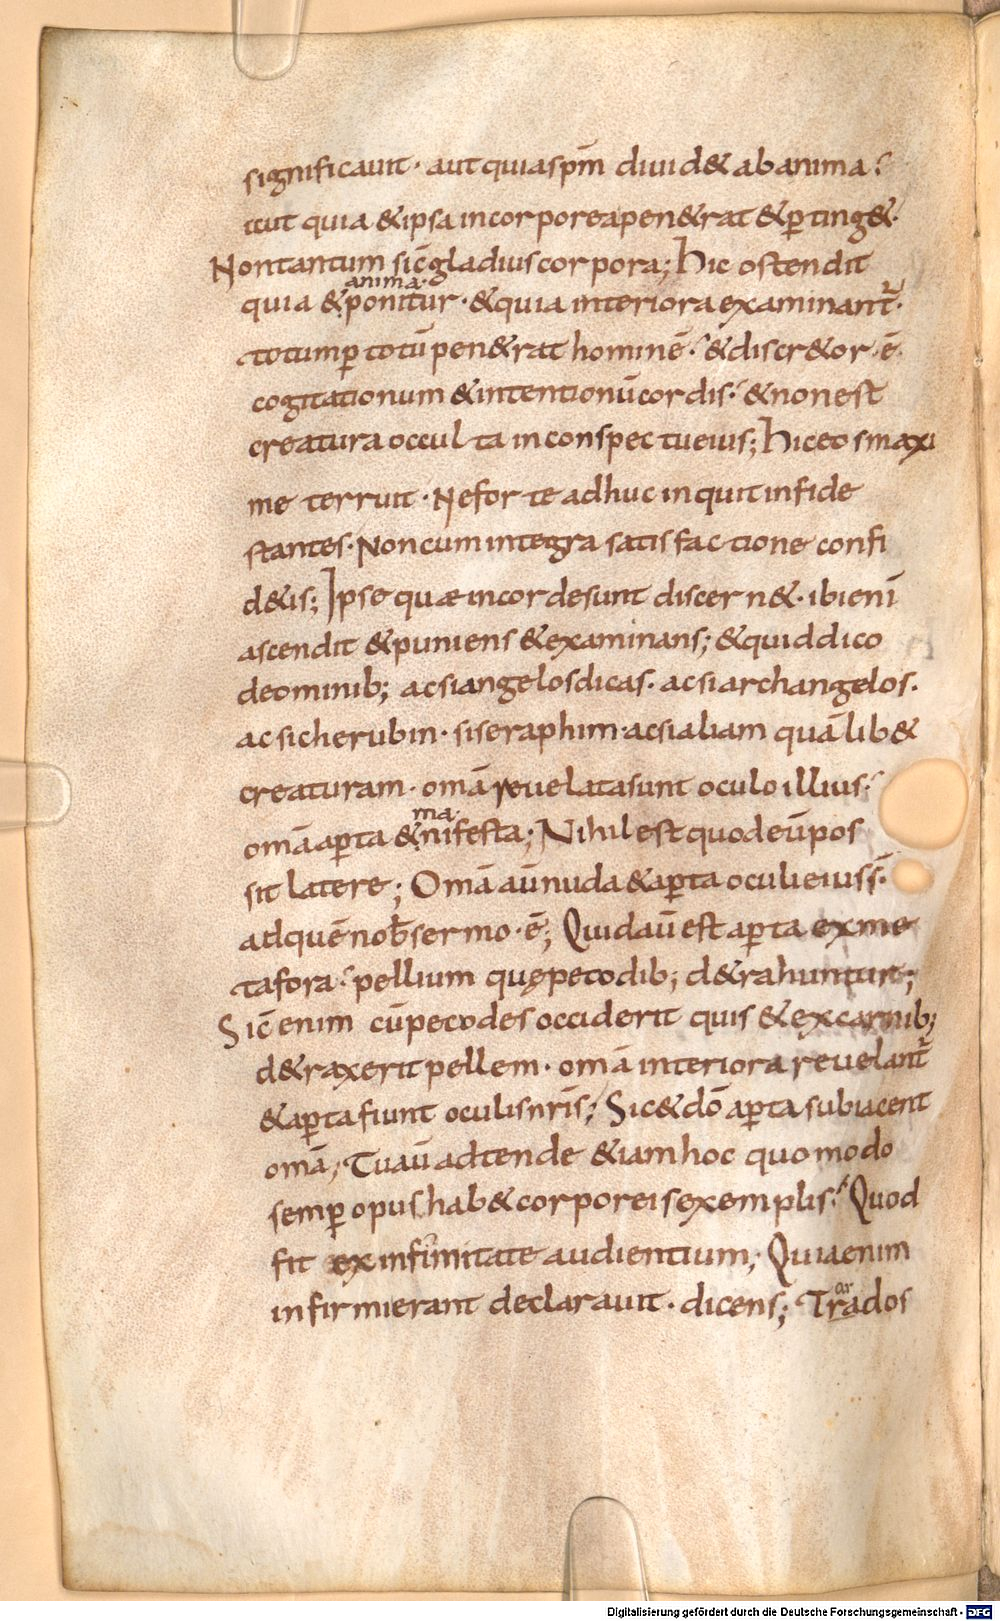 significauit · aut quia spm̄ diuid& ab anima ·
aut quia & ipsa incorporea pen&rat & ꝑting& ·
Non tantum sic̄ gladius corpora; hic ostendit
anima ·
quia & ponitur · & quia interiora examinant᷑ ·
totum ꝑ totū pen&rat hominē · & discr&or · ē ·
cogitationum & intentionū cordis · & non est
creatura occulta in conspectu eius; hic eos maxi
me terruit · Ne forte adhuc inquit in fide
stantes · Non cum integra satisfactione confi
d&is; Ipse quæ in corde sunt discern& · ibi enī
ascendit & puniens & examinans; & quid dico
de ominib; ac si angelos dicas · ac si archangelos ·
ac si cherubin · si seraphim · ac si aliam quā lib&
creaturam · omā reuelata sunt oculo illius ·
ma ·
omā aꝑta & nifesta; Nihil est quod eū pos
sit latere; Omā aū nuda & aꝑta oculi eius s̄ ·
ad quē nob̄ sermo · ē; Quid aū est aꝑta ex me
tafora · pellium quę pecodib; d&rahuntur;
Sic̄ enim cū pecodes occiderit quis & ex carnib;
d&raxerit pellem · omā interiora reuelant᷑
& aꝑta fiunt oculis nr̄is; Sic & dō aꝑta subiacent
omā; Tu aū adtende &iam hoc quomodo
semꝑ opus hab& corporeis exemplis · Quod
fit ex infirmitate audientium; Quia enim
infirmi erant declarauit · dicens; Trados
ar